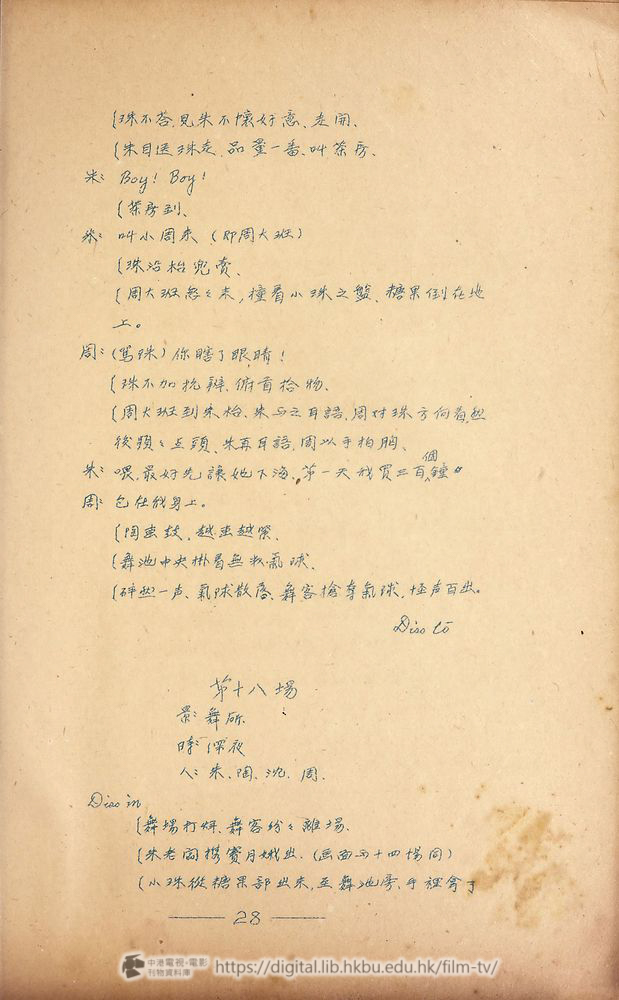 {珠不答,見朱不懷好意、走開、
{朱目送珠走,品量一番、叫茶房、
朱: Boy! Boy!
{茶房到、
朱: 叫小周来 (即周大班)
{珠沿枱兜賣、
{周大班怱々来,撞着小珠之盤、糖果倒在地
上。
周: (罵珠) 你瞎了眼睛!
{珠不加抗辨、俯首拾物、
{周大班到朱枱、朱与之耳語、周对珠方向看,然
後頻々点頭、朱再耳語,周以手拍胸、
朱: 喂,最好先讓她下海、第一天我買三百個鐘"
周: 包在我身上。
{陶击鼓、越击越緊、
{舞池中央掛着無数氣球、
{砰然一声、氣球散落、舞客搶奪氣球,怪声百出。
Diss to
第十八場
景: 舞所
時: 深夜
人: 朱、陶、沈、周、
Diss in
{舞場打烊、舞客纷々離場、
{朱老闆携賽月娥出、(画面与十四場同)
{小珠從糖果部出来,至舞池旁、手裡拿了
28
中港電視·電影
刊物資料庫
https://digital.lib.hkbu.edu.hk/film-tv/